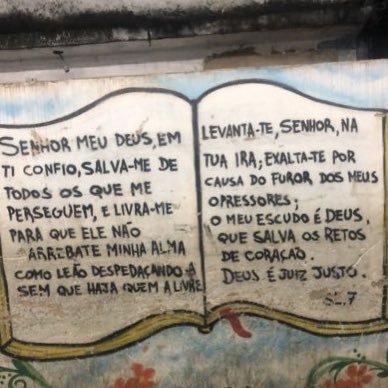 SENHOR MEU DEUS, EM
TI CONFIO, SALVA-ME DE
TODOS OS QUE ME
PERSEGUEM, E LIVRA-ME
PARA QUE ELE NÃO
ARREBATE MINHA ALMA
COMO LEÃO DESPEDAÇANDO-A
SEM QUE HAJA QUEM A LIVRE
LEVANTA-TE, SENHOR, NA
TUA IRA; EXALTA-TE POR
CAUSA DO FUROR DOS MEUS
OPRESSORES;
O MEU ESCUDO É DEUS,
QUE SALVA OS RETOS
DE CORAÇÃO.
DEUS É JUIZ JUSTO.
SL.7